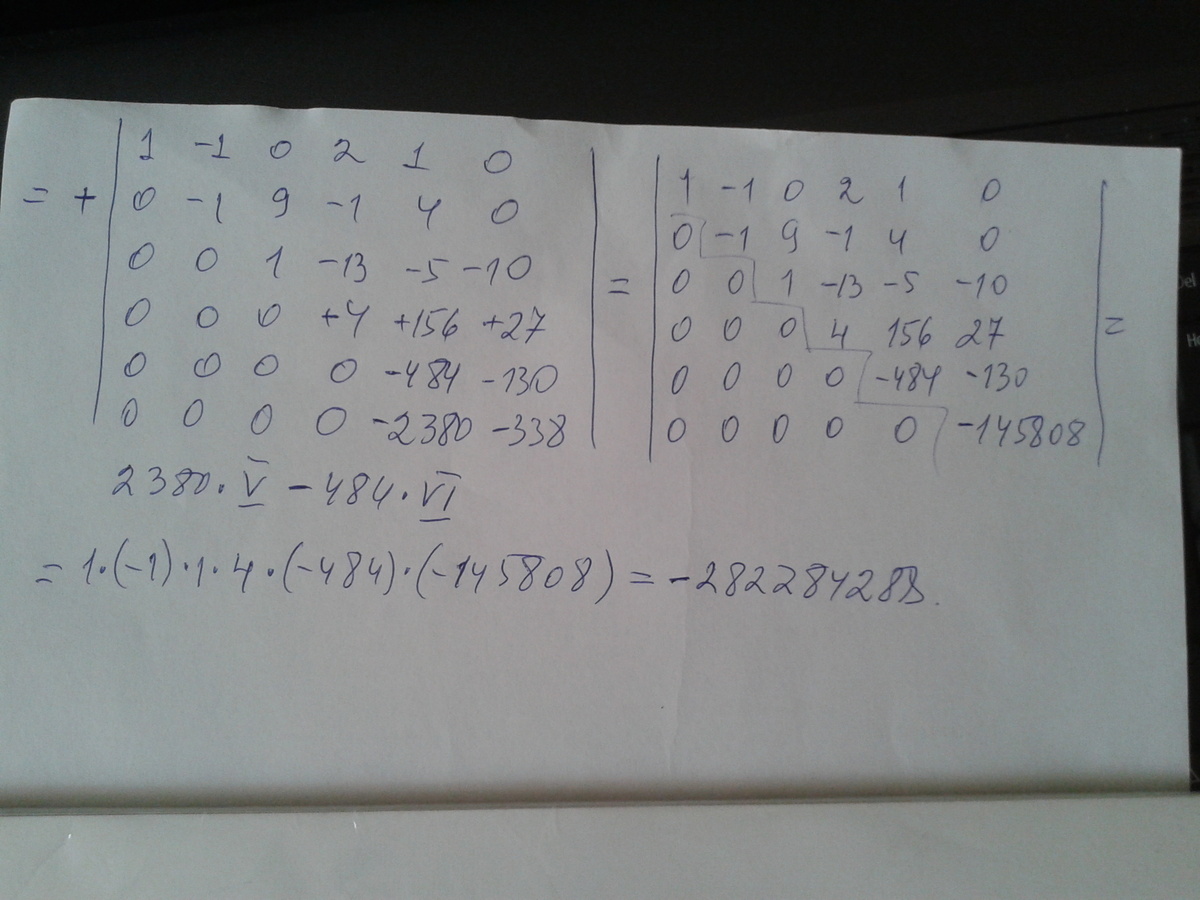 = + | 1 -1 0 2 1 0 | = | 1 -1 0 2 1 0 | =
0 -1 9 -1 4 0 | 0 -1 9 -1 4 0
0 0 1 -13 -5 -10 | 0 0 1 -13 -5 -10
0 0 0 +4 +156 +27 | 0 0 0 4 156 27
0 0 0 0 -484 -130 | 0 0 0 0 -484 -130
0 0 0 0 -2380 -338 | 0 0 0 0 0 -145808
2380 · V - 484 · VI
= 1·(-1)·1·4·(-484)·(-145808) = -282284288.